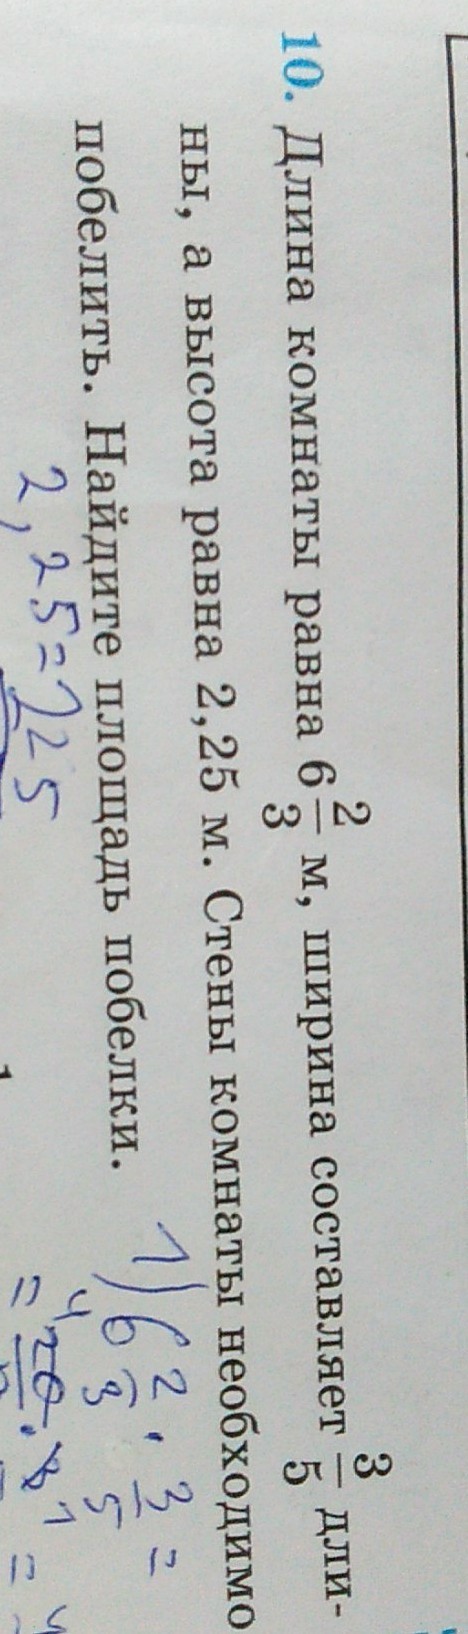 10. Длина комнаты равна 6 2/3 м, ширина составляет 3/5 дли-
ны, а высота равна 2,25 м. Стены комнаты необходимо
побелить. Найдите площадь побелки.
2,25=
1) 6 2/3 · 3/5 =